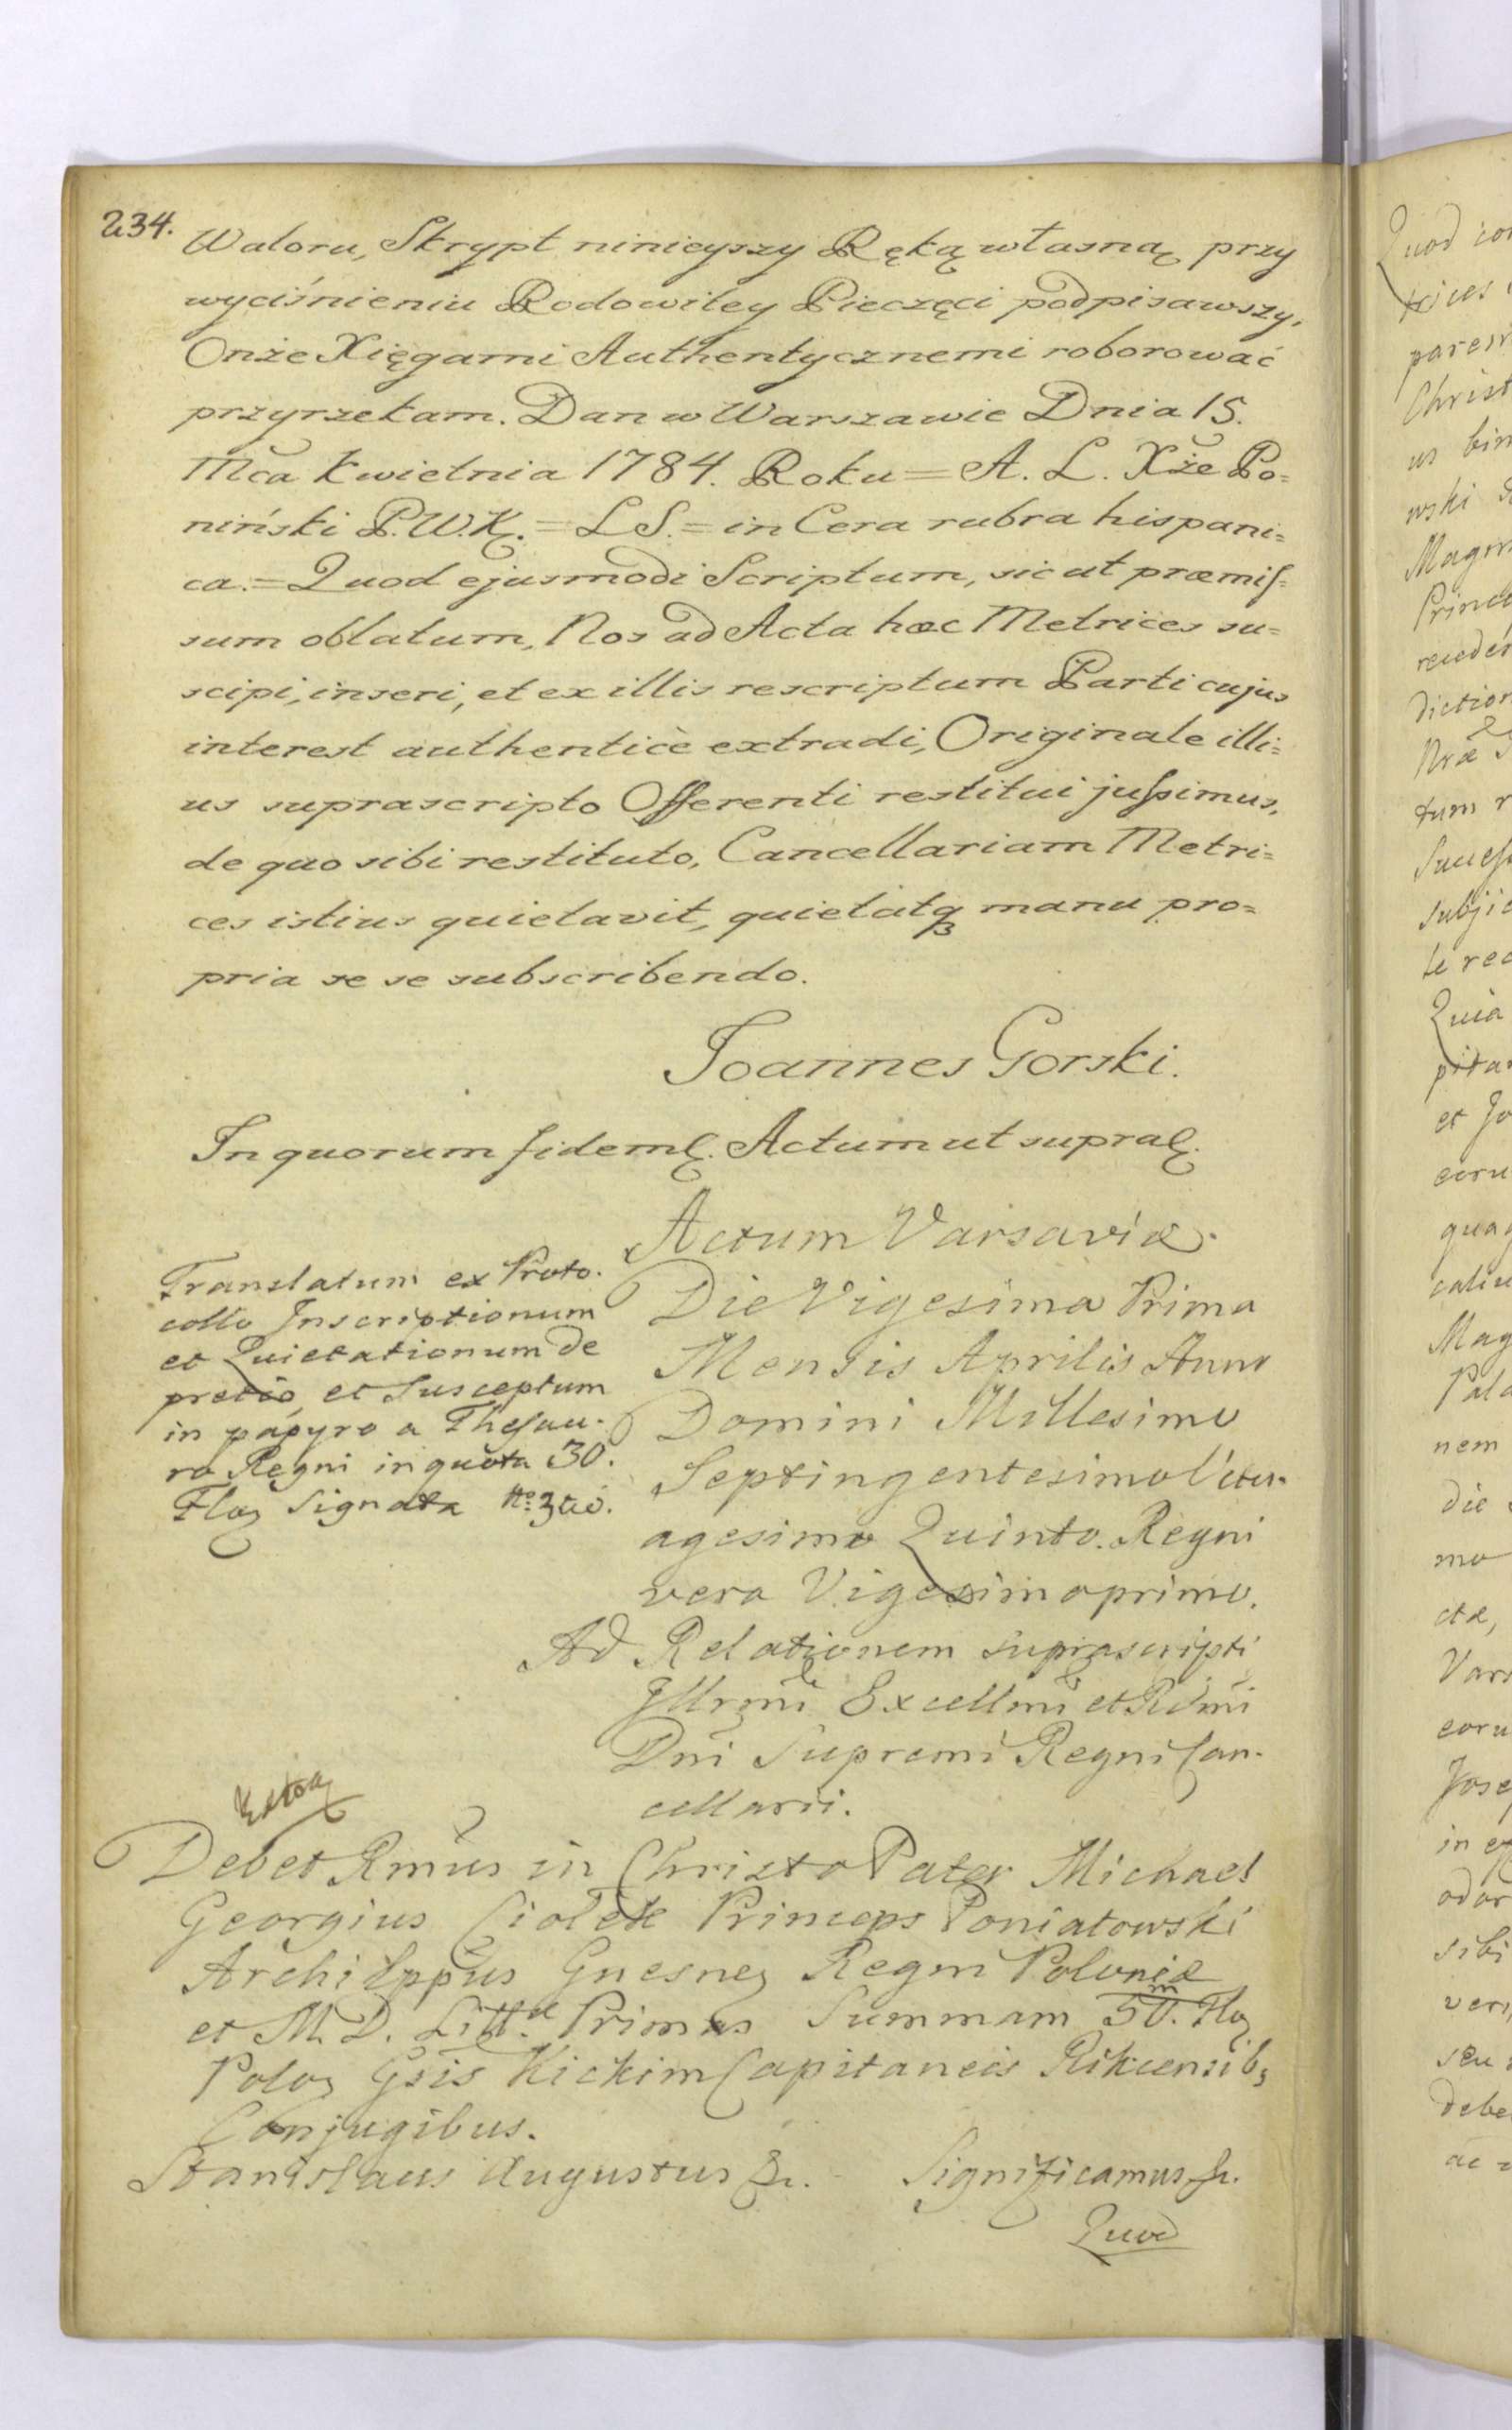 234.
Waloru, Skrypt ninieyszy Ręką własną przy
wyciśnieniu Rodowitey Pieczęci podpisawszy,
Onże Xięgami Authentycznemi roborować
przyrzekam. Dan w Warszawie Dnia 15.
Mca Kwietnia 1784. Roku = A. L. Xże Po=
niński P.W.K. = LS. = in Cera rubra hispani=
ca. = Quod ejusmodi Scriptum, sic ut præmis=
sum oblatum, Nos ad Acta hæc Metrices su=
scipi, inseri, et ex illis rescriptum Parti cujus
interest authenticè extradi, Originale illi=
us suprascripto Offerenti restitui jussimus,
de quo sibi restituto, Cancellariam Metri=
ces istius quietavit, quietatq3 manu pro=
pria se se subscribendo.
Joannes Gorski.
In quorum fidem. Actum ut supra.
Actum Varsaviæ.
Die Vigesima Prima
Mensis Aprilis Anno
Domini Millesimo
Septingentesimo Octu-
agesimo Quinto. Regni
vero Vigesimo primo.
Translatum ex Proto-
collo Inscriptionum
et Quietationum de
pretio, et Susceptum
in papyro a Thesau-
ro Regni in quota 30.
Flor Signata No.
Ad Relationem suprascripti
Illrmi Excellmi et Rdmi
Dni Supremi Regni Can-
cellarii.
Debet Rmus in Christo Pater Michael
Georgius Ciołek Princeps Poniatowski
Archieppus Gnesnen Regni Poloniæ
et M. D. Litt. Primas Summam 50.m Flor
Polon Gsis Kickim Capitaneis Rikcensib9
Conjugibus.
Stanislaus Augustus &c. Significamus &c.
Quod